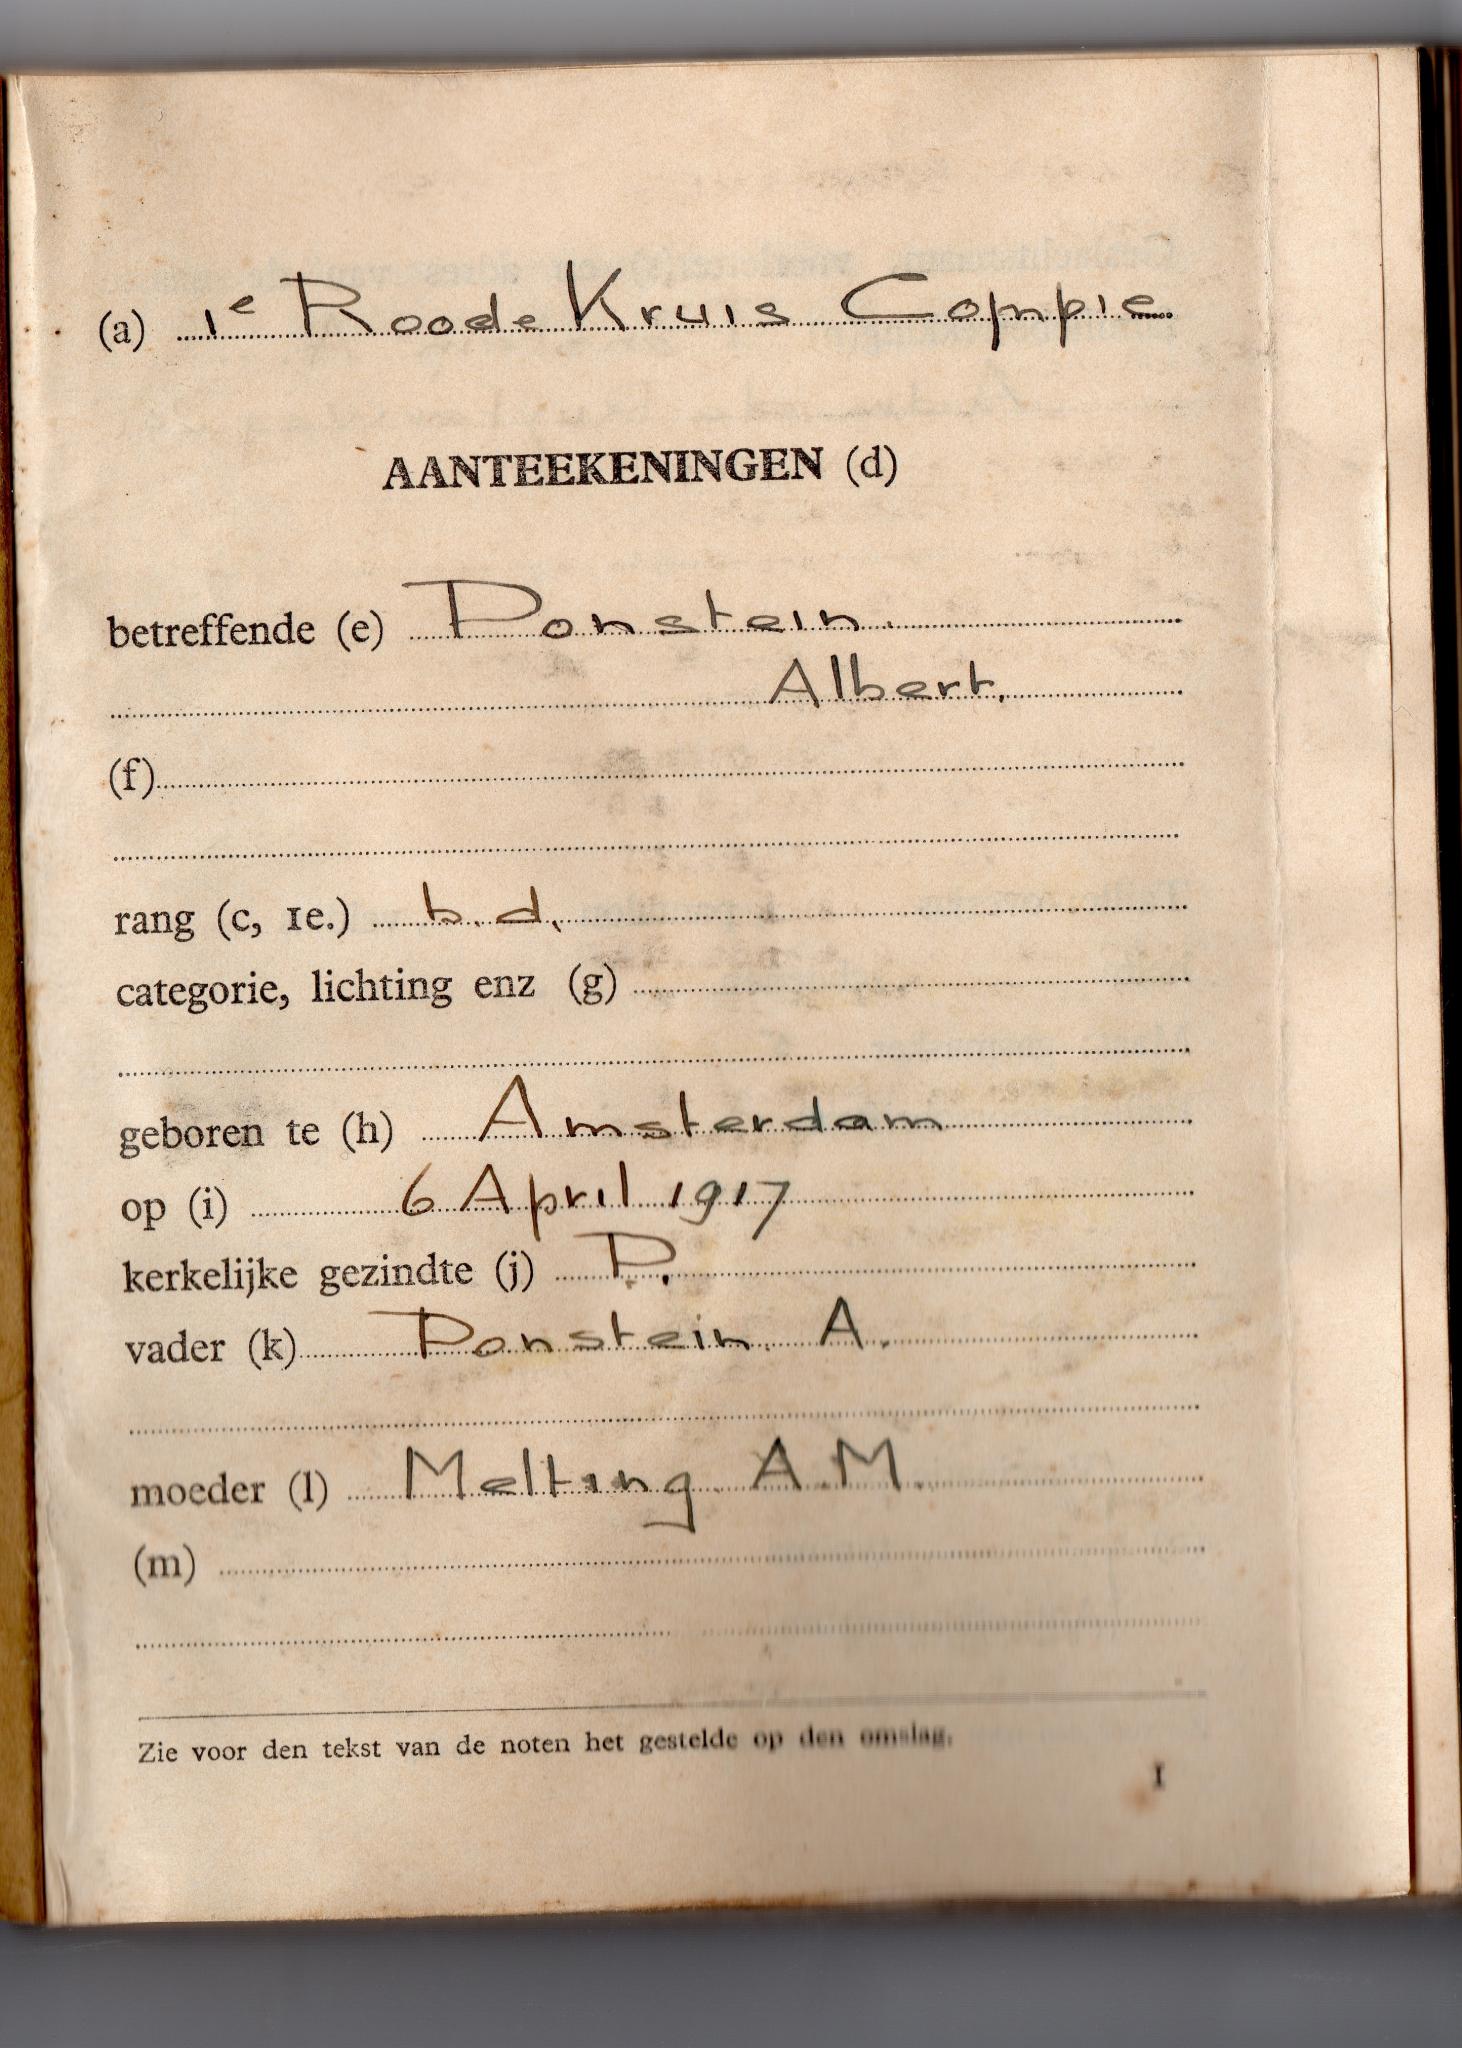 (a) 1e Roode Kruis Compie
AANTEEKENINGEN (d)
betreffende (e) Ponstein.
Albert.
(f)
rang (c, 1e.) b.d.
categorie, lichting enz (g)
geboren te (h) Amsterdam
op (i) 6 April 1917
kerkelijke gezindte (j) P.
vader (k) Ponstein. A.
moeder (l) Melting. A.M.
(m)
Zie voor den tekst van de noten het gestelde op den omslag.
1